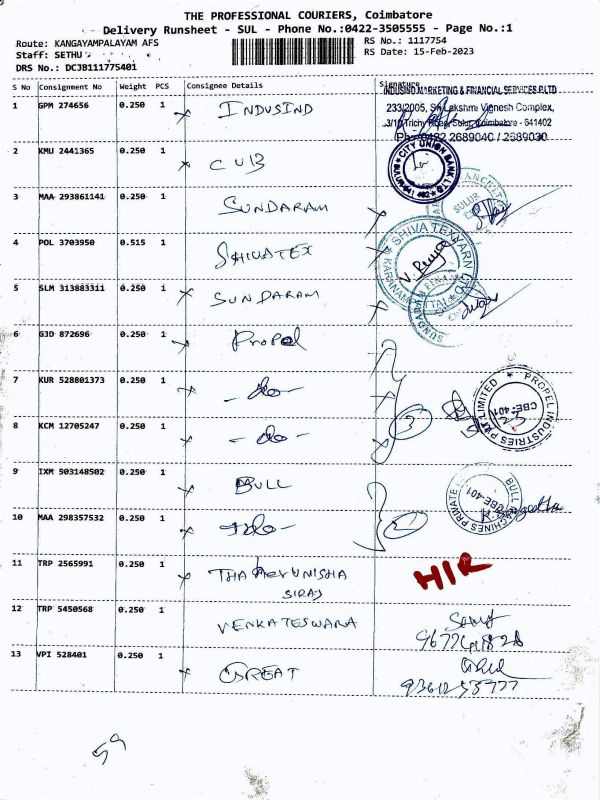 THE PROFESSIONAL COURIERS, Coimbatore
Delivery Runsheet - SUL - Phone No.:0422-3505555 - Page No.:1
Route: KANGAYAMPALAYAM AFS
RS No.: 1117754
Staff: SETHU
RS Date: 15-Feb-2023
DRS No.: DCJB111775401
S No Consignment No Weight PCS Consignee Details Signature
INDUSIND MARKETING & FINANCIAL SERVICES P.LTD
1 GPM 274656 0.250 1 INDUSIND
233/2005, Sri Lakshmi Vignesh Complex,
3/10 Trichy Road, Sulur, Coimbatore - 641402
Ph: 0422 2689040 / 2689030
2 KMU 2441365 0.250 1 CUB
CITY UNION BANK LTD
3 MAA 293861141 0.250 1 SUNDARAM
SULUR
4 POL 3703950 0.515 1 SHIVATEX
SHIVA TEXYARN LTD
V. Priya
5 SLM 313883311 0.250 1 SUNDARAM
SUNDARAM FINANCE
6 GJD 872696 0.250 1 Propel
7 KUR 528801373 0.250 1 - do -
3
PROPEL INDUSTRIES PVT LIMITED
CBE-401
8 KCM 12705247 0.250 1 - do -
9 IXM 503148502 0.250 1 BULL
BULL MACHINES PRIVATE
CBE-401
10 MAA 298357532 0.250 1 - do -
2
11 TRP 2565991 0.250 1
SIRAJ
HIR
12 TRP 5450568 0.250 1 VENKATESWARA
13 VPI 528401 0.250 1 GREAT
59